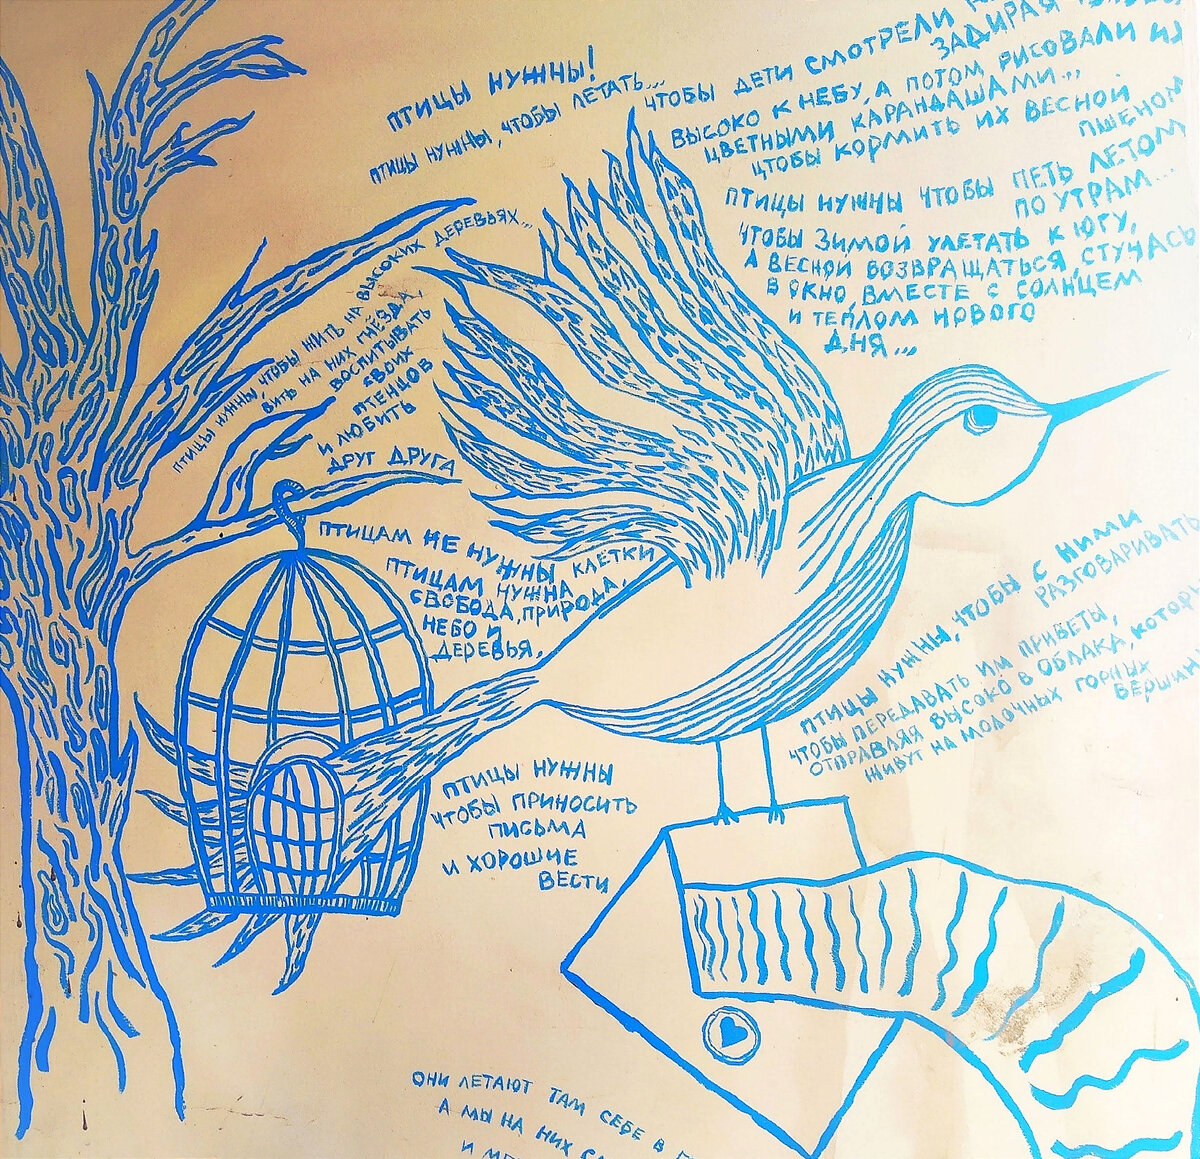 ПТИЦЫ НУЖНЫ!
ПТИЦЫ НУЖНЫ, ЧТОБЫ ЛЕТАТЬ...
ЧТОБЫ ДЕТИ СМОТРЕЛИ
ЗАДИРАЯ
ВЫСОКО К НЕБУ, А ПОТОМ РИСОВАЛИ ИХ
ЦВЕТНЫМИ КАРАНДАШАМИ...
ЧТОБЫ КОРМИТЬ ИХ ВЕСНОЙ
ПШЕНОМ
ПТИЦЫ НУЖНЫ ЧТОБЫ ПЕТЬ ЛЕТОМ
ПО УТРАМ...
ЧТОБЫ ЗИМОЙ УЛЕТАТЬ К ЮГУ,
А ВЕСНОЙ ВОЗВРАЩАТЬСЯ, СТУЧАСЬ
В ОКНО, ВМЕСТЕ С СОЛНЦЕМ
И ТЕПЛОМ НОВОГО
ДНЯ...
ПТИЦЫ НУЖНЫ, ЧТОБЫ ЖИТЬ НА ВЫСОКИХ ДЕРЕВЬЯХ...
ВИТЬ НА НИХ ГНЁЗДА,
ВОСПИТЫВАТЬ
СВОИХ
ПТЕНЦОВ
И ЛЮБИТЬ
ДРУГ ДРУГА
ПТИЦАМ НЕ НУЖНЫ КЛЕТКИ
ПТИЦАМ НУЖНА
СВОБОДА, ПРИРОДА,
НЕБО И
ДЕРЕВЬЯ,
ПТИЦЫ НУЖНЫ, ЧТОБЫ С НИМИ
РАЗГОВАРИВАТЬ
ЧТОБЫ ПЕРЕДАВАТЬ ИМ ПРИВЕТЫ,
ОТПРАВЛЯЯ ВЫСОКО В ОБЛАКА,
ЖИВУТ НА МОЛОЧНЫХ ГОРНЫХ
ПТИЦЫ НУЖНЫ
ЧТОБЫ ПРИНОСИТЬ
ПИСЬМА
И ХОРОШИЕ
ВЕСТИ
ОНИ ЛЕТАЮТ ТАМ СЕБЕ В
А МЫ НА НИХ
И